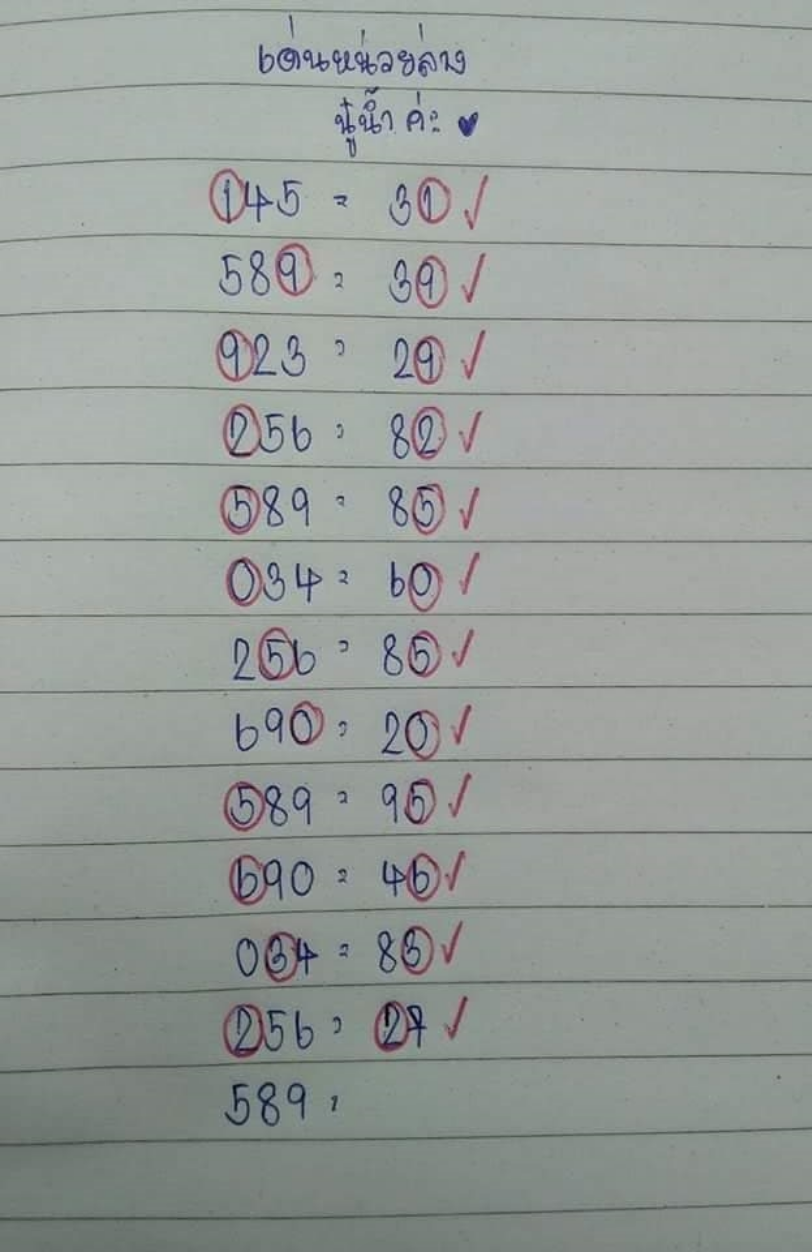 เด่นหน่วยล่าง
นู๋น้ำ ค่ะ ♥
145 = 31 ✓
589 = 39 ✓
923 = 29 ✓
256 = 82 ✓
589 = 85 ✓
034 = 60 ✓
256 = 85 ✓
690 = 20 ✓
589 = 95 ✓
690 = 46 ✓
034 = 83 ✓
256 = 27 ✓
589 =